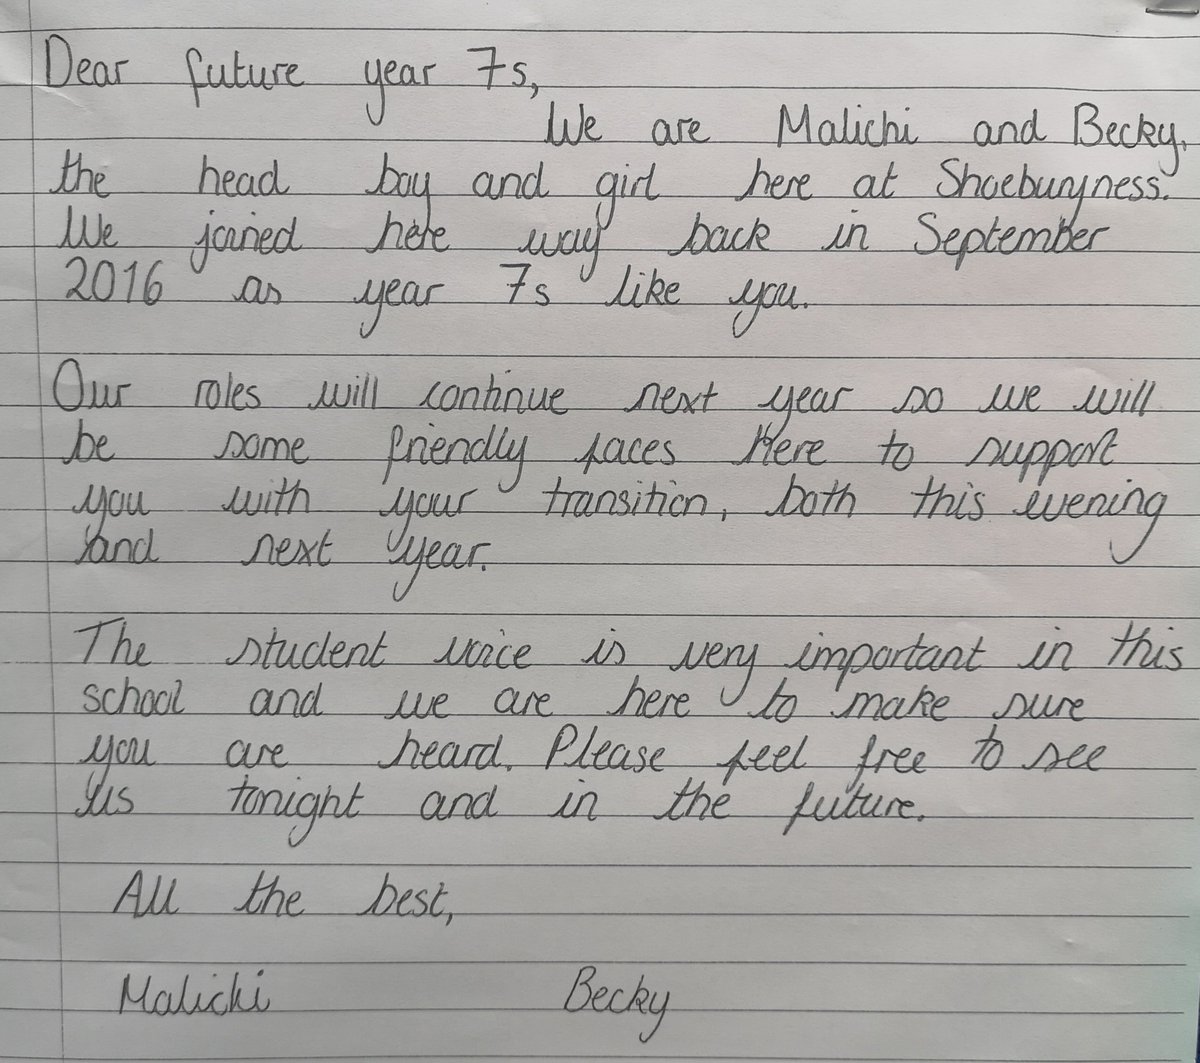 Dear future year 7s,
We are Malichi and Becky,
the head boy and girl here at Shoeburyness.
We joined here way back in September
2016 as year 7s like you.
Our roles will continue next year so we will
be some friendly faces here to support
you with your transition, both this evening
and next year.
The student voice is very important in this
school and we are here to make sure
you are heard. Please feel free to see
us tonight and in the future.
All the best,
Malichi Becky